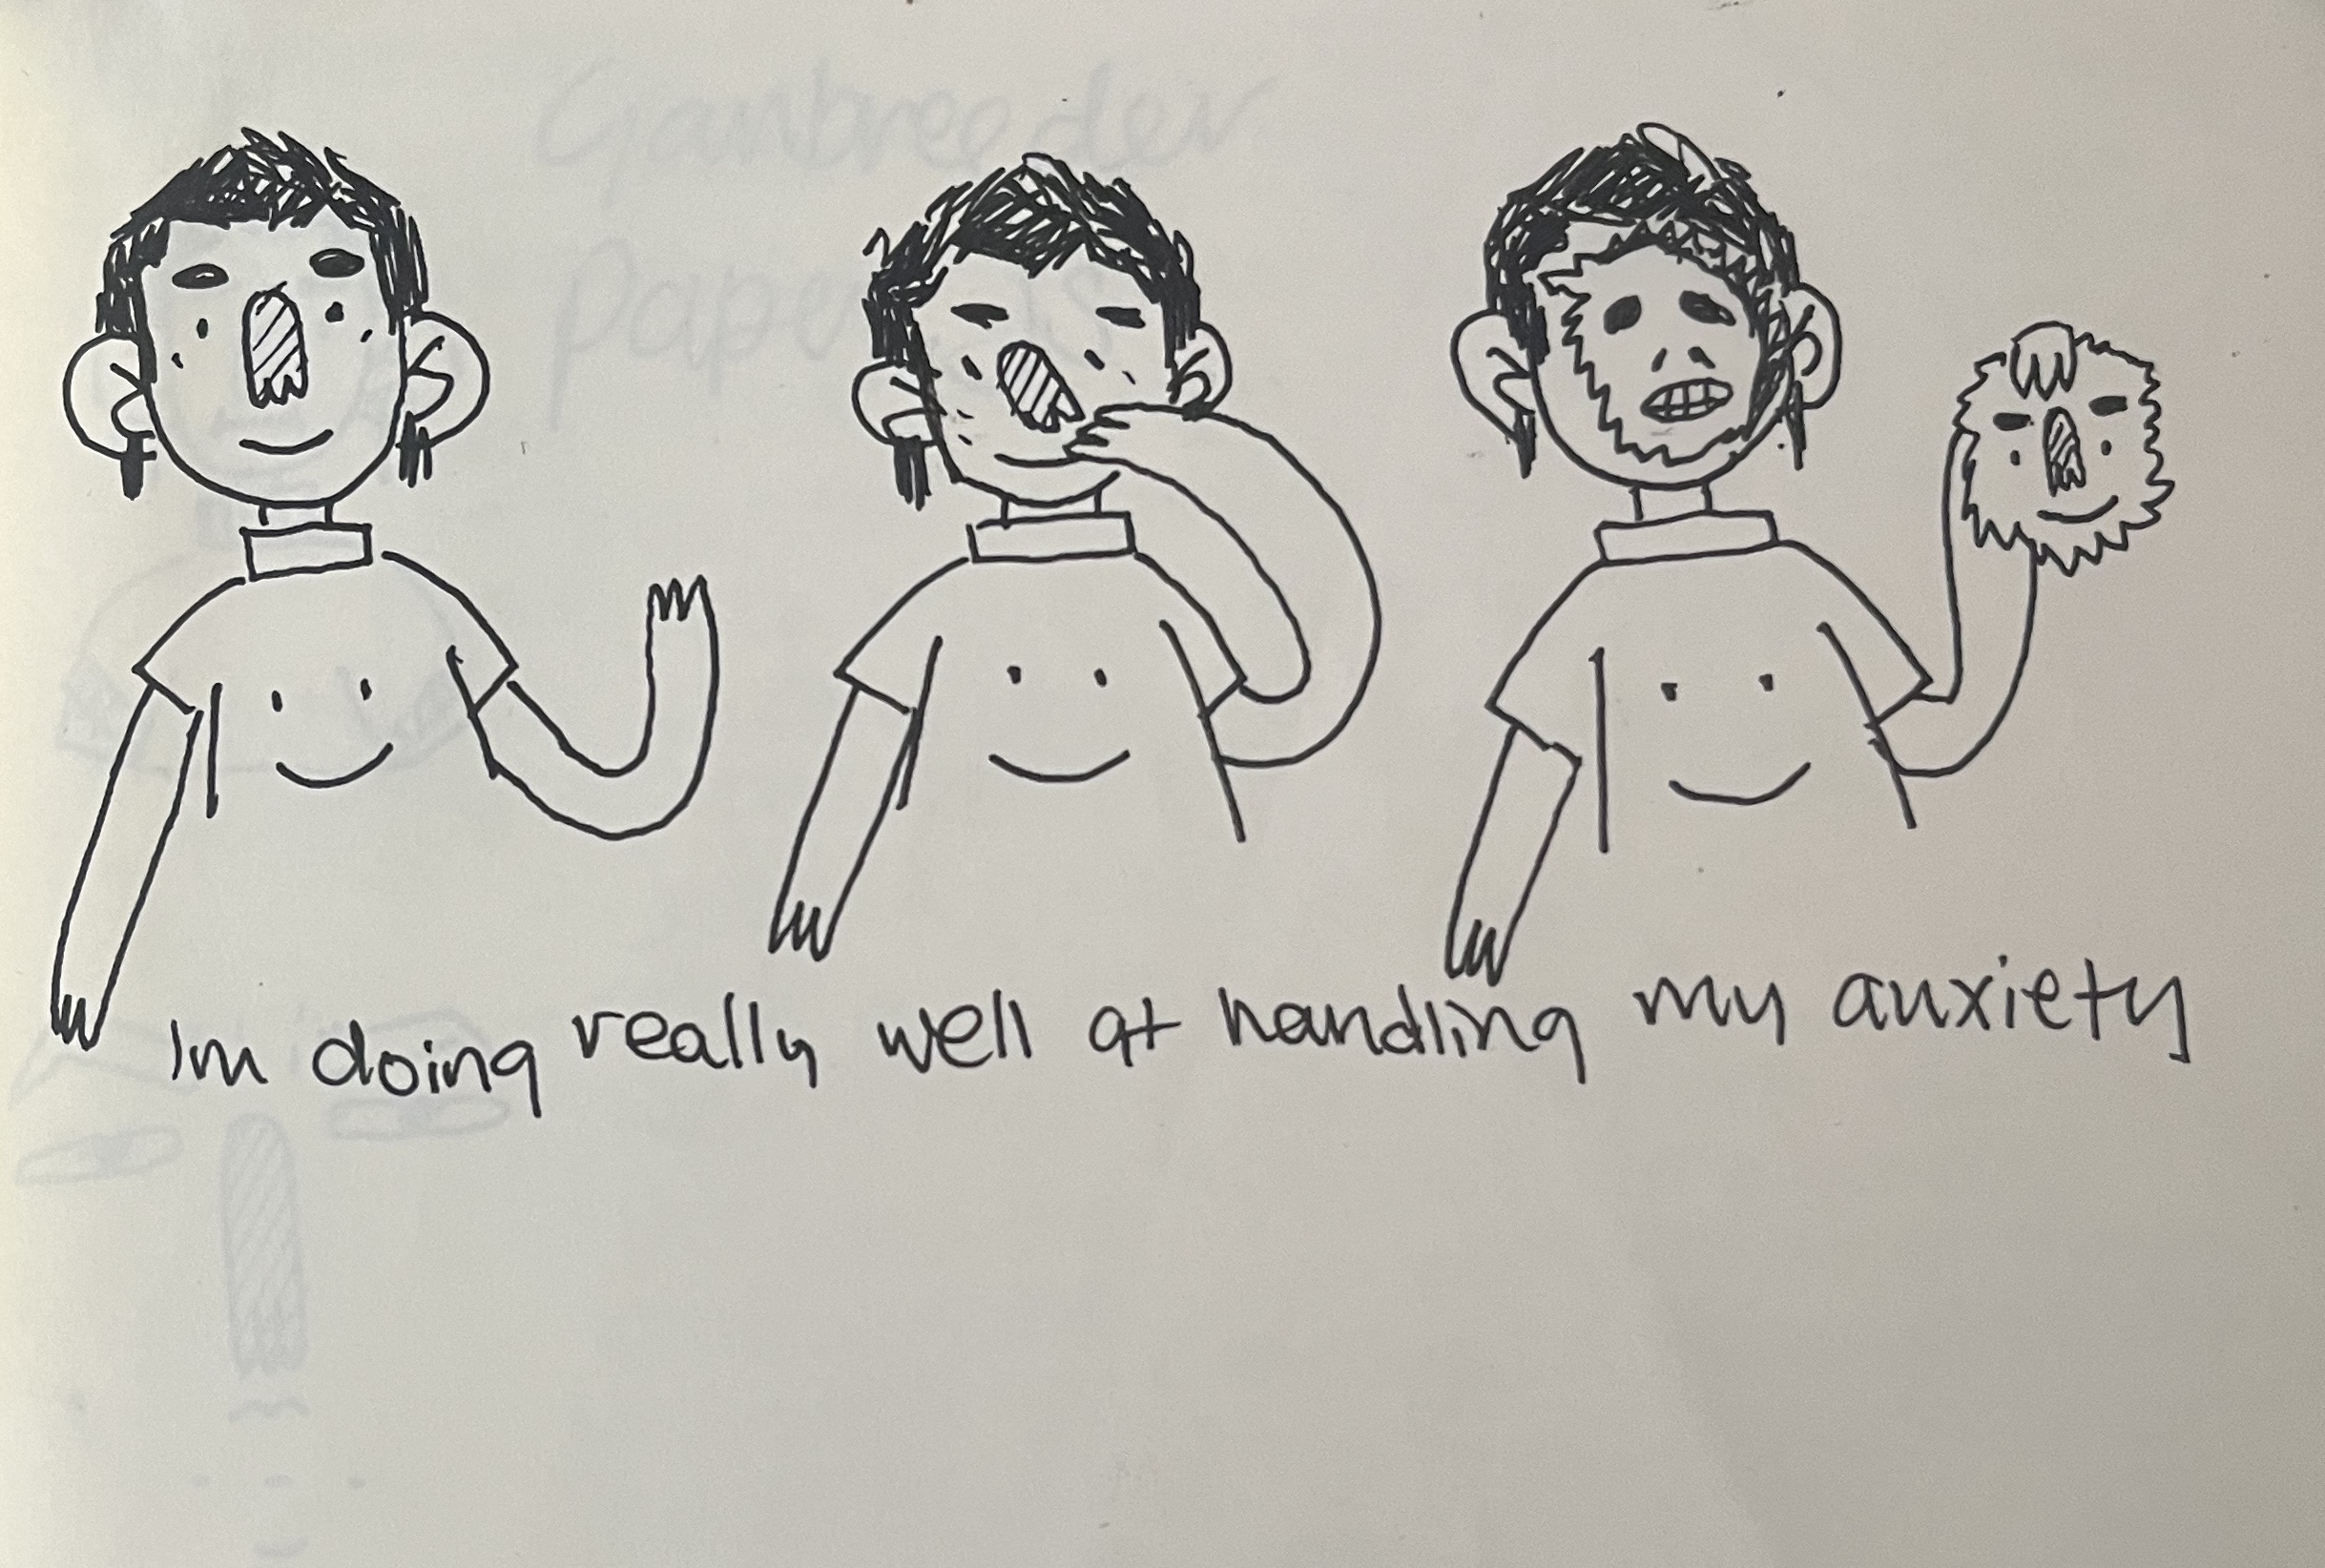 Ganbreeder
Im doing really well at handling my anxiety